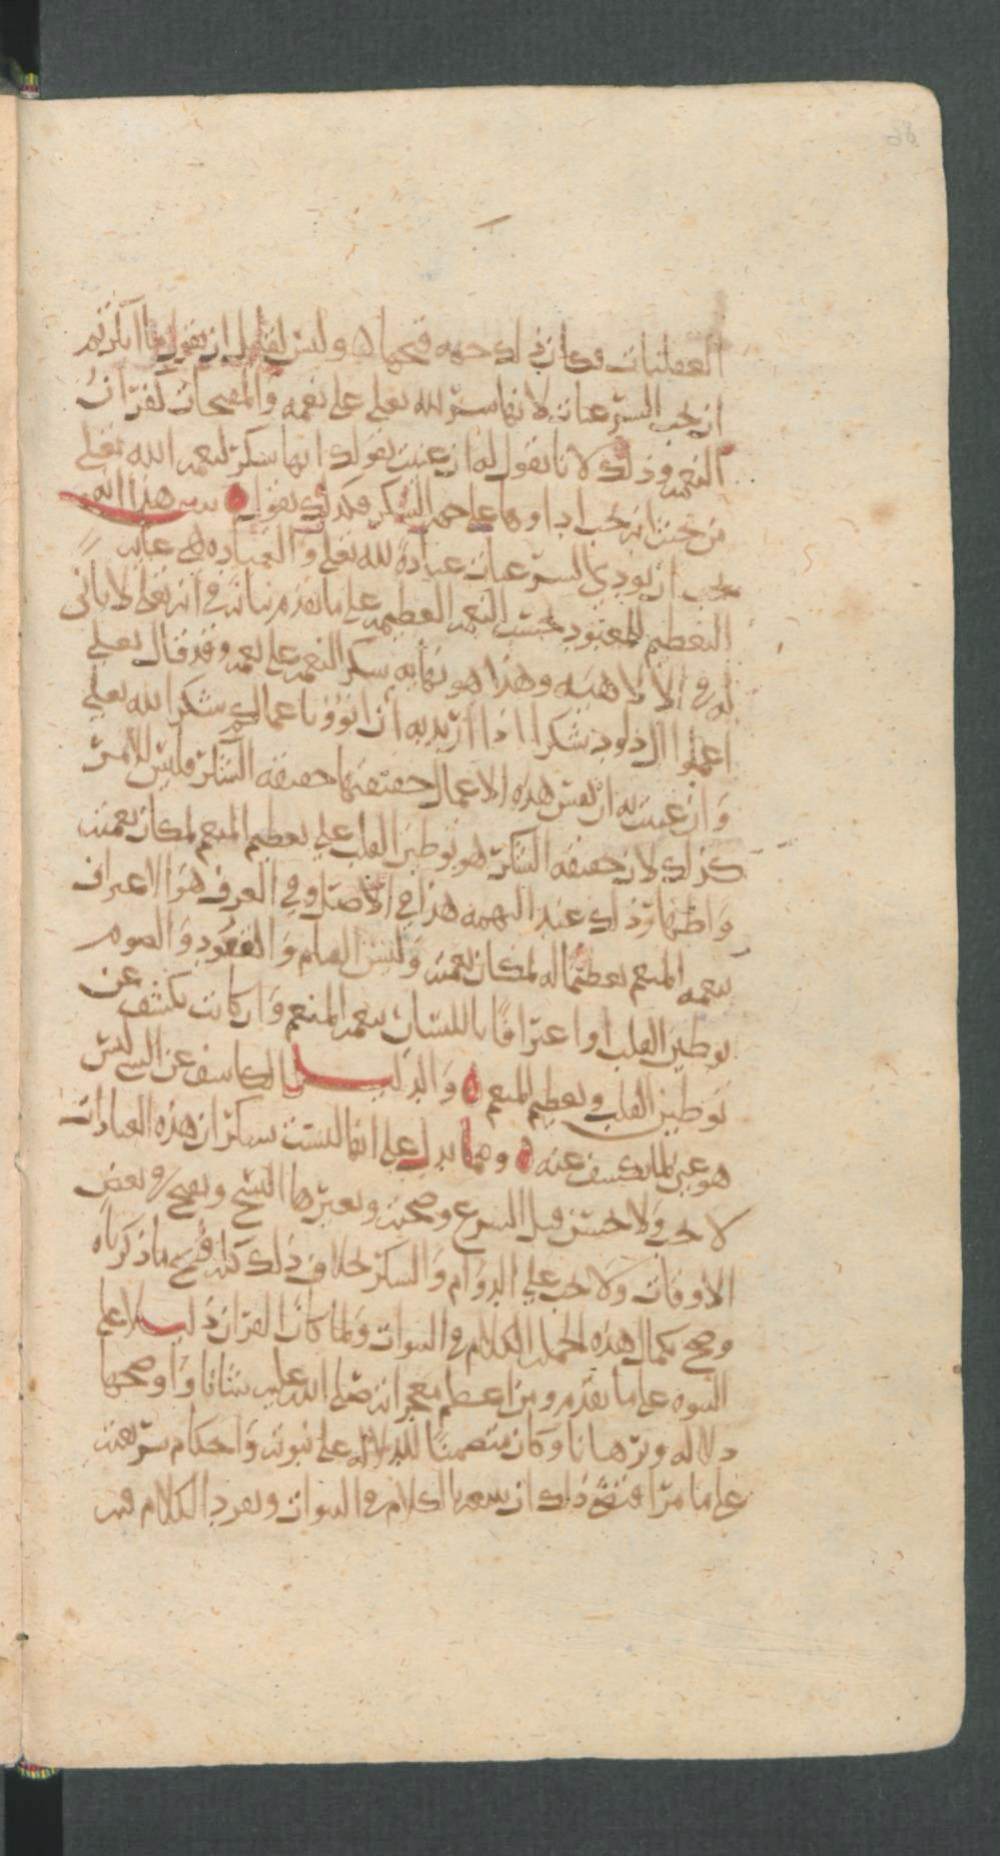 العقليات فكان في ذلك جهه قبحها ه وليس لقائل ان يقول ما انكرتم
ان يجب الشرعيات لانها شكر لله تعلى على نعمه والمقبحات كفران
النعمه وذلك لانا نقول له ان عنيت بقولك انها شكر لنعمه الله تعلى
من حيث انه يجب اداوها على جهه الشكر فكذلك نقول ه هذا انه
يجب ان يودي الشرعيات عباده لله تعلى والعباده هي غايه
التعظيم للمعبود بحسب النعمه العظيمه على ما تقدم بيانه في انه تعلى لا ثاني
له في الالاهيه وهذا هو نهايه شكر النعمه على نعمه وقد قال تعلى
اعملوا ال داود شكرا اذا اريد به ان ادوا باعمالكم شكر الله تعلى
وان عنيت به ان نفس هذه الاعمال حقيقتها حقيقه الشكر فليس الامر
كذلك لان حقيقه الشكر هو توطين القلب على تعظيم المنعم لمكان نعمته
واظهار ذلك عند التهمه هذا في الاصل وفي العرف هو الاعتراف
بنعمه المنعم تعظيما له لمكان نعمته وليس القيام والقعود والصوم
توطين القلب او اعترافا باللسان بنعمه المنعم وان كانت تكشف عن
توطين القلب وتعظيم المنعم ه والدليل الكاشف عن الشي ليس
هو عين ما يكشف عنه ه ومما يدل على انها ليست بشكر ان هذه العبادات
لا تجب ولا تحسن قبل الشرع وصحته ويعتبرها النسخ ويقبح في بعض
الاوقات ولا تجب على الدوام والشكر خلاف ذلك كله فصح ما ذكرناه
وصح بكمال هذه الجمله الكلام في النبوات ولما كان القران دليلا على
النبوه على ما تقدم ومن اعظم معجزاته صلى الله عليه شانا واوضحها
دلاله وبرهانا وكان متضمنا للدلاله على نبوته واحكام شريعته
على ما مر اقتضى ذلك ان الكلام في النبوات ونفرد الكلام فيه